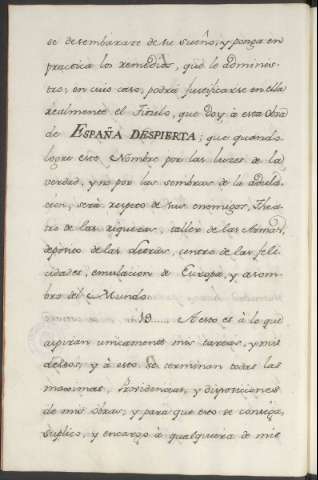 se desembarare de su sueño, y ponga en
practica los remedios, que le adminis-
tro; en cuio caso, podrá justificarse en ella
realmente el Titulo, que doy à esta Obra
de ESPAÑA DESPIERTA; que quando
logre este Nombre por las luzes de la
verdad, y no por las sombras de la adula-
cion, será respeto de sus enemigos, Thea-
tro de las riquezas, taller de las Armas,
deposito de las Letras, centro de las feli-
cidades, emulacion de Europa, y asom-
bro del Mundo.
19...... A esto es à lo que
aspiran unicamente mis tareas, y mis
deseos; y à esto se terminan todas las
maximas, Providencias, y disposiciones
de mis obras; y para que esto se consiga,
suplico, y encargo à qualquiera de mis